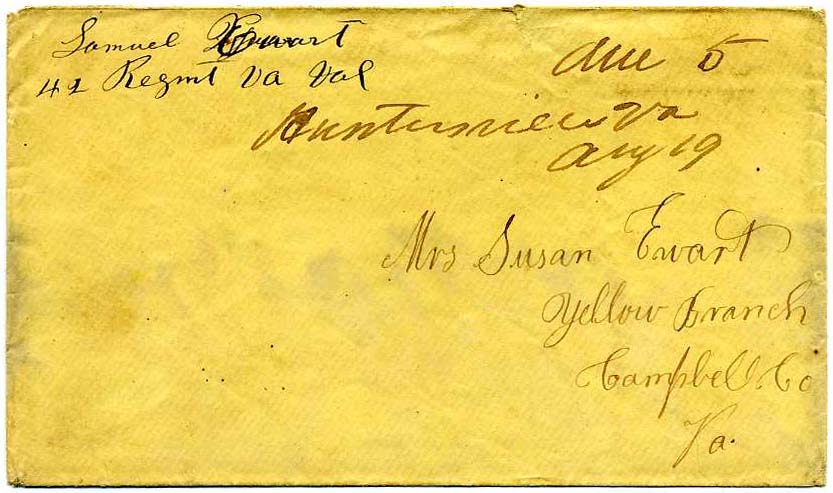 Samuel Ewart
42 Regmt Va Vol
Due 5
Huntersville Va
Aug 19
Mrs Susan Ewart
Yellow Branch
Campbell Co
Va.